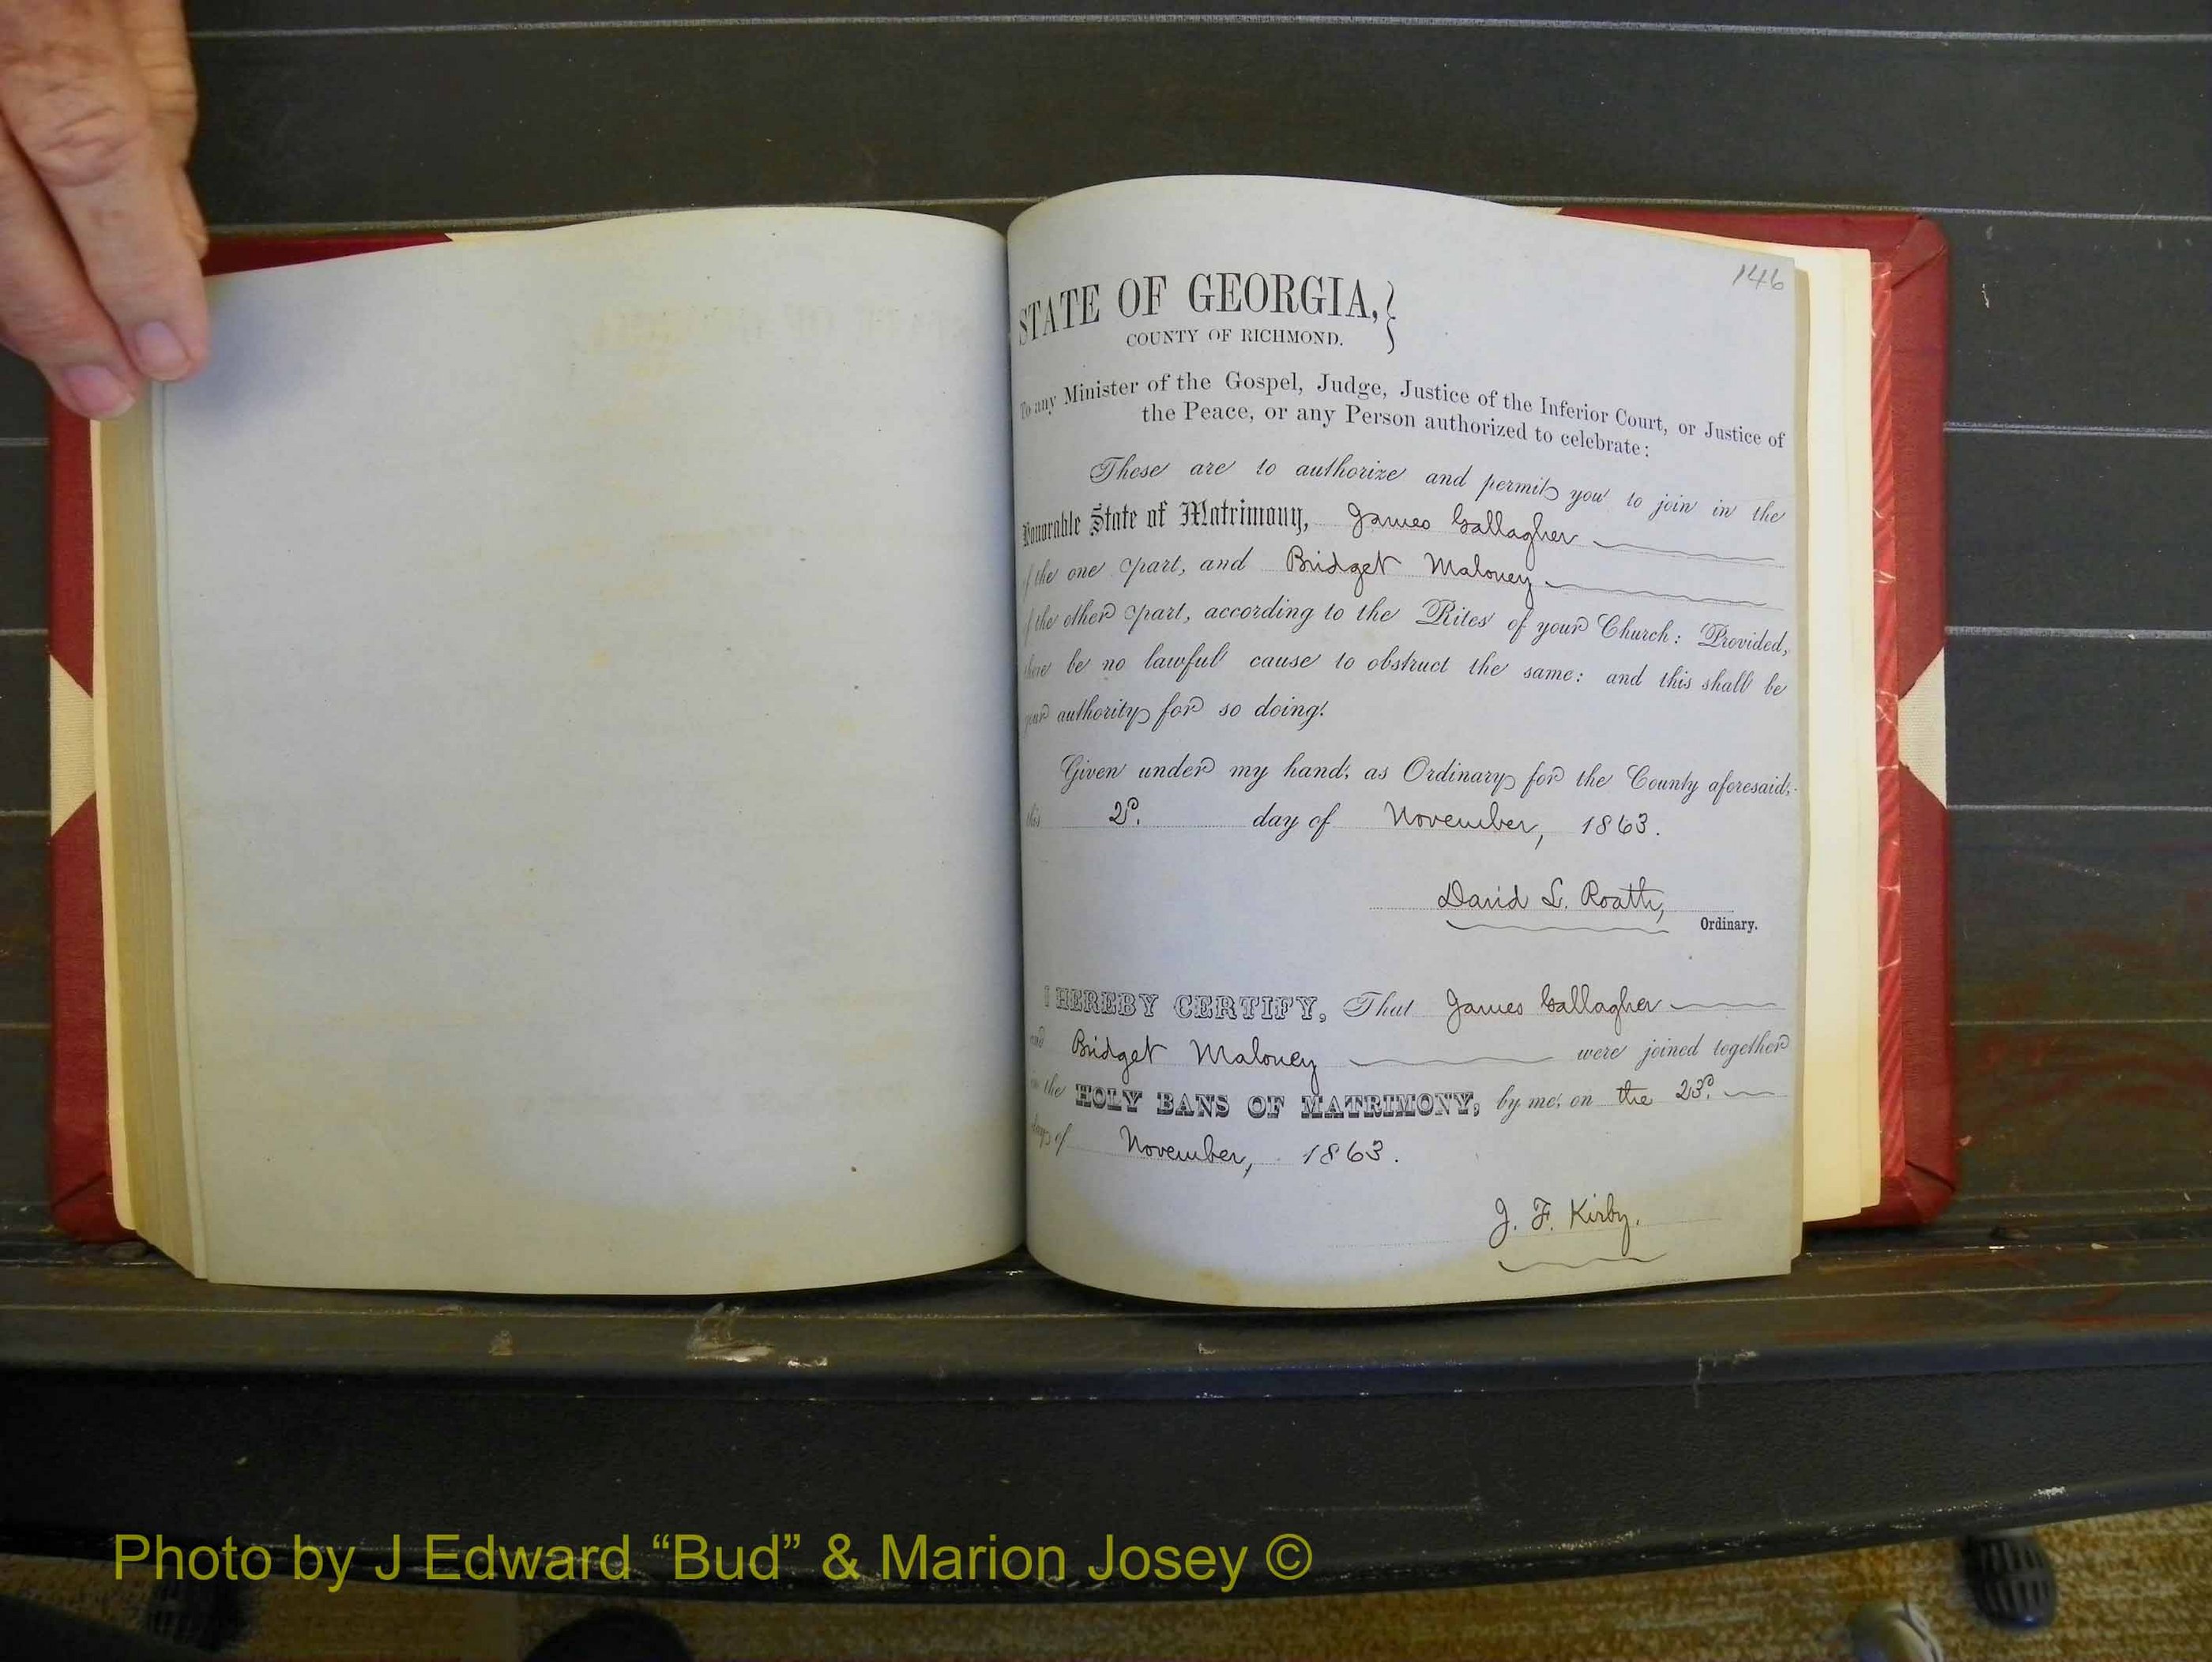 146
STATE OF GEORGIA,
COUNTY OF RICHMOND.
To any Minister of the Gospel, Judge, Justice of the Inferior Court, or Justice of
the Peace, or any Person authorized to celebrate:
These are to authorize and permit you to join in the
Honorable State of Matrimony, James Gallagher
of the one part, and Bridget Maloney
of the other part, according to the Rites of your Church: Provided,
there be no lawful cause to obstruct the same: and this shall be
your authority for so doing.
Given under my hand, as Ordinary for the County aforesaid,
this 2d. day of November, 1863.
David L. Roath,
Ordinary.
I HEREBY CERTIFY, That James Gallagher
and Bridget Maloney were joined together
in the HOLY BANS OF MATRIMONY, by me, on the 23d.
day of November, 1863.
J. F. Kirby.
Photo by J Edward “Bud” & Marion Josey ©